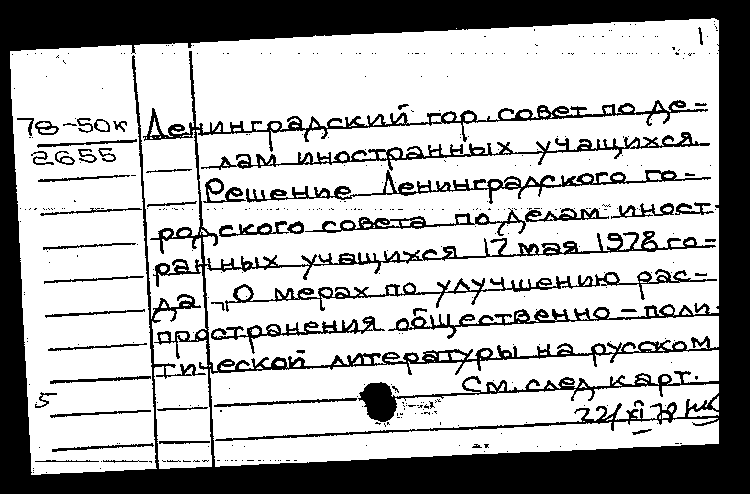 1
78-50к Ленинградский гор. совет по де=
2655 лам иностранных учащихся.
Решение Ленинградского го-
родского совета по делам иност-
ранных учащихся 17 мая 1978 го=
да „О мерах по улучшению рас-
пространения общественно-поли-
тической литературы на русском
См. след. карт.
5
22/XI 78